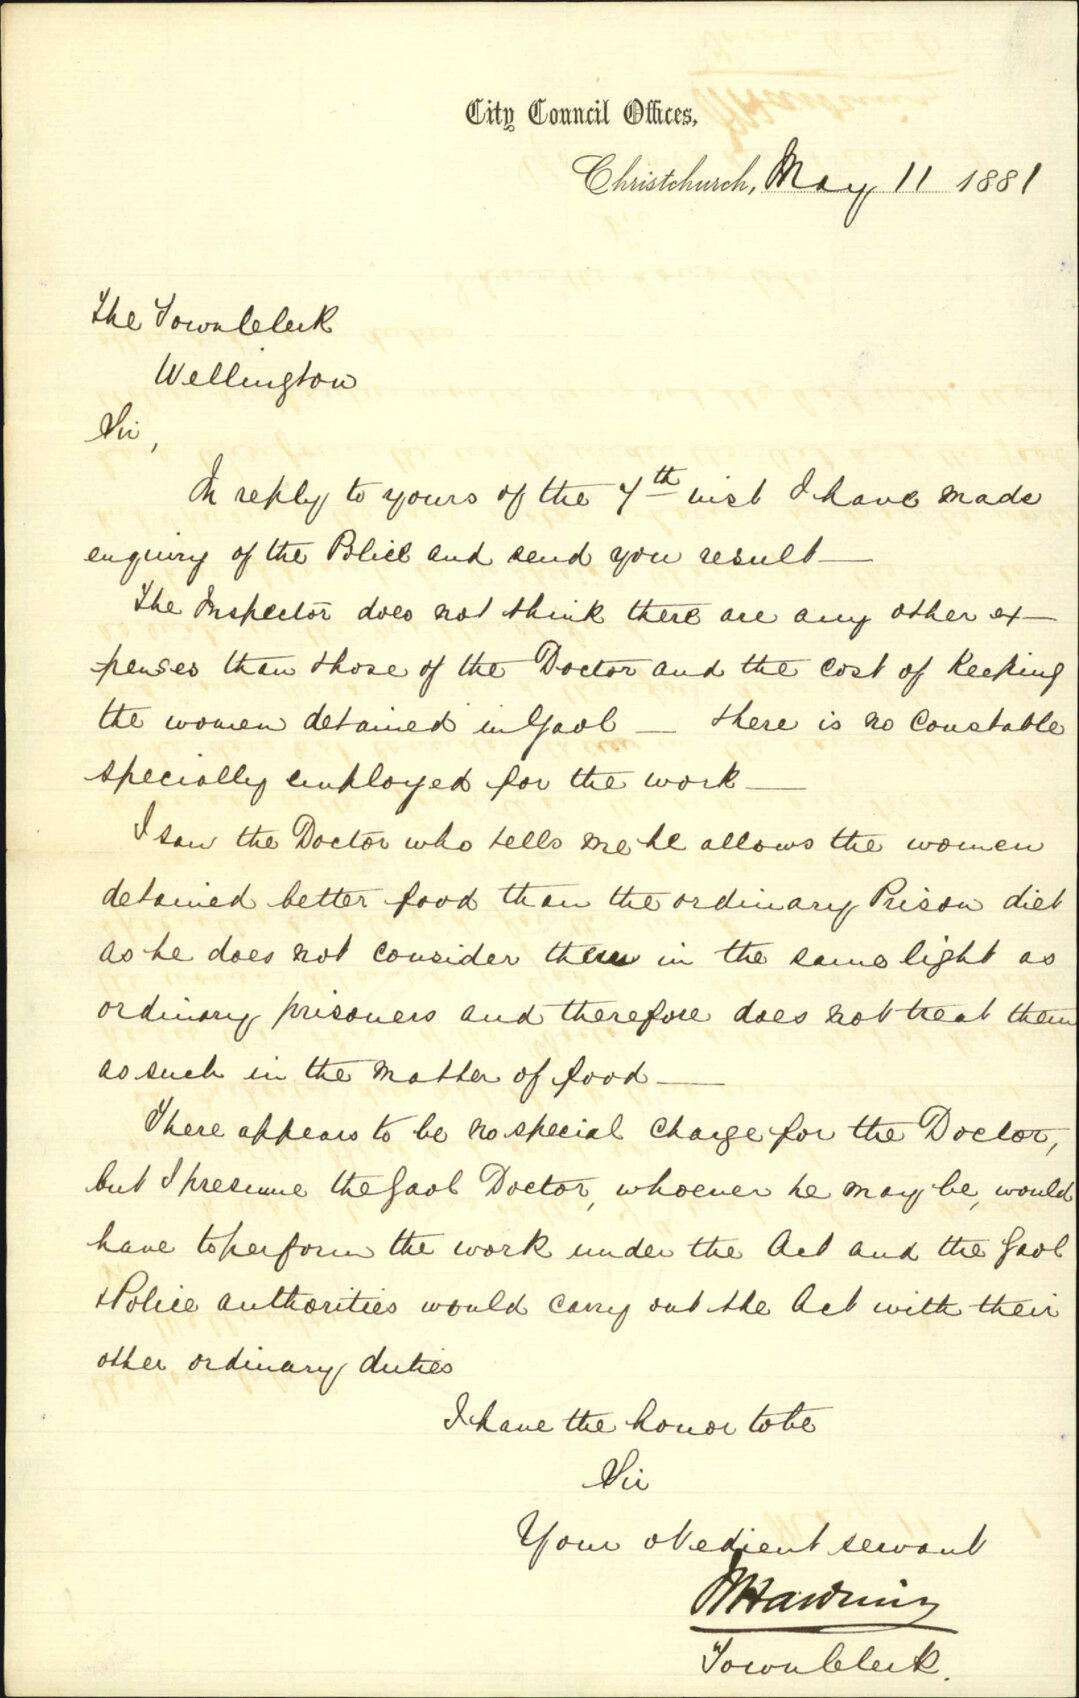 City Council Offices,
Christchurch, May 11 1881
The Town Clerk
Wellington
Sir,
In reply to yours of the 7th inst I have made
enquiry of the Police and send you result—
The Inspector does not think there are any other ex—
penses than those of the Doctor and the cost of keeping
the women detained in Gaol — there is no Constable
specially employed for the work—
I saw the Doctor who tells me he allows the women
detained better food than the ordinary Prison diet
as he does not consider them in the same light as
ordinary prisoners and therefore does not treat them
as such in the matter of food—
There appears to be no special charge for the Doctor,
but I presume the Gaol Doctor, whoever he may be, would
have to perform the work under the Act and the Gaol
& Police authorities would carry out the Act with their
other ordinary duties
I have the honor to be
Sir
Your obedient servant
Town Clerk.